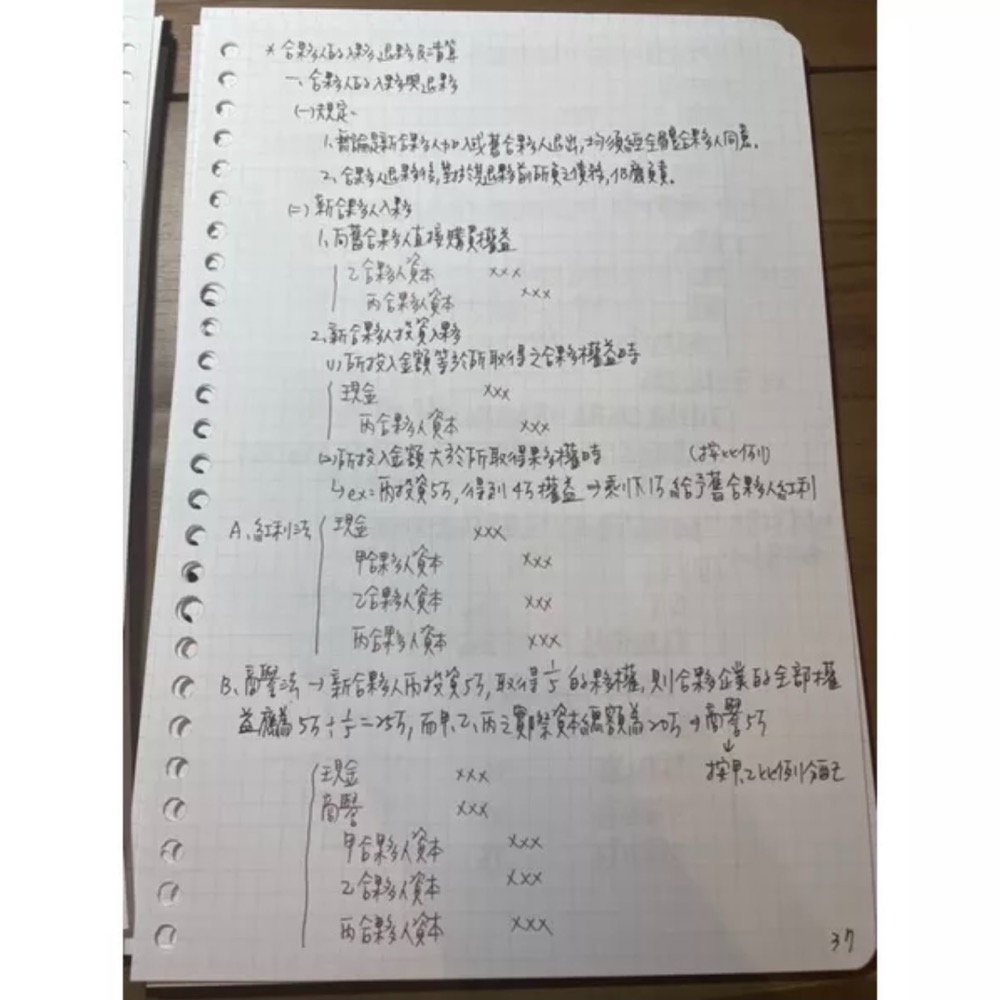 * 合夥人的入夥、退夥及清算
一、合夥人的入夥與退夥
(一)規定、
1、無論是新合夥人加入或舊合夥人退出,均須經全體合夥人同意。
2、合夥人退夥後,對於退夥前所負之債務,仍應負責。
(二)新合夥人入夥
1、向舊合夥人直接購買權益
乙合夥人資本 xxx
丙合夥人資本 xxx
2、新合夥人投資入夥
(1)所投入金額等於所取得之合夥權益時
現金 xxx
丙合夥人資本 xxx
(2)所投入金額大於所取得夥權時 (按比例)
↳ex=丙投資5万,得到4万權益→剩下1万給予舊合夥人紅利
A、紅利法 現金 xxx
甲合夥人資本 xxx
乙合夥人資本 xxx
丙合夥人資本 xxx
B、商譽法→新合夥人丙投資5万,取得1/5的夥權,則合夥企業的全部權
益應為5万÷1/5=25万,而甲、乙、丙之實際資本總額為20万→商譽5万
↓
按甲、乙比例分配
現金 xxx
商譽 xxx
甲合夥人資本 xxx
乙合夥人資本 xxx
丙合夥人資本 xxx
37